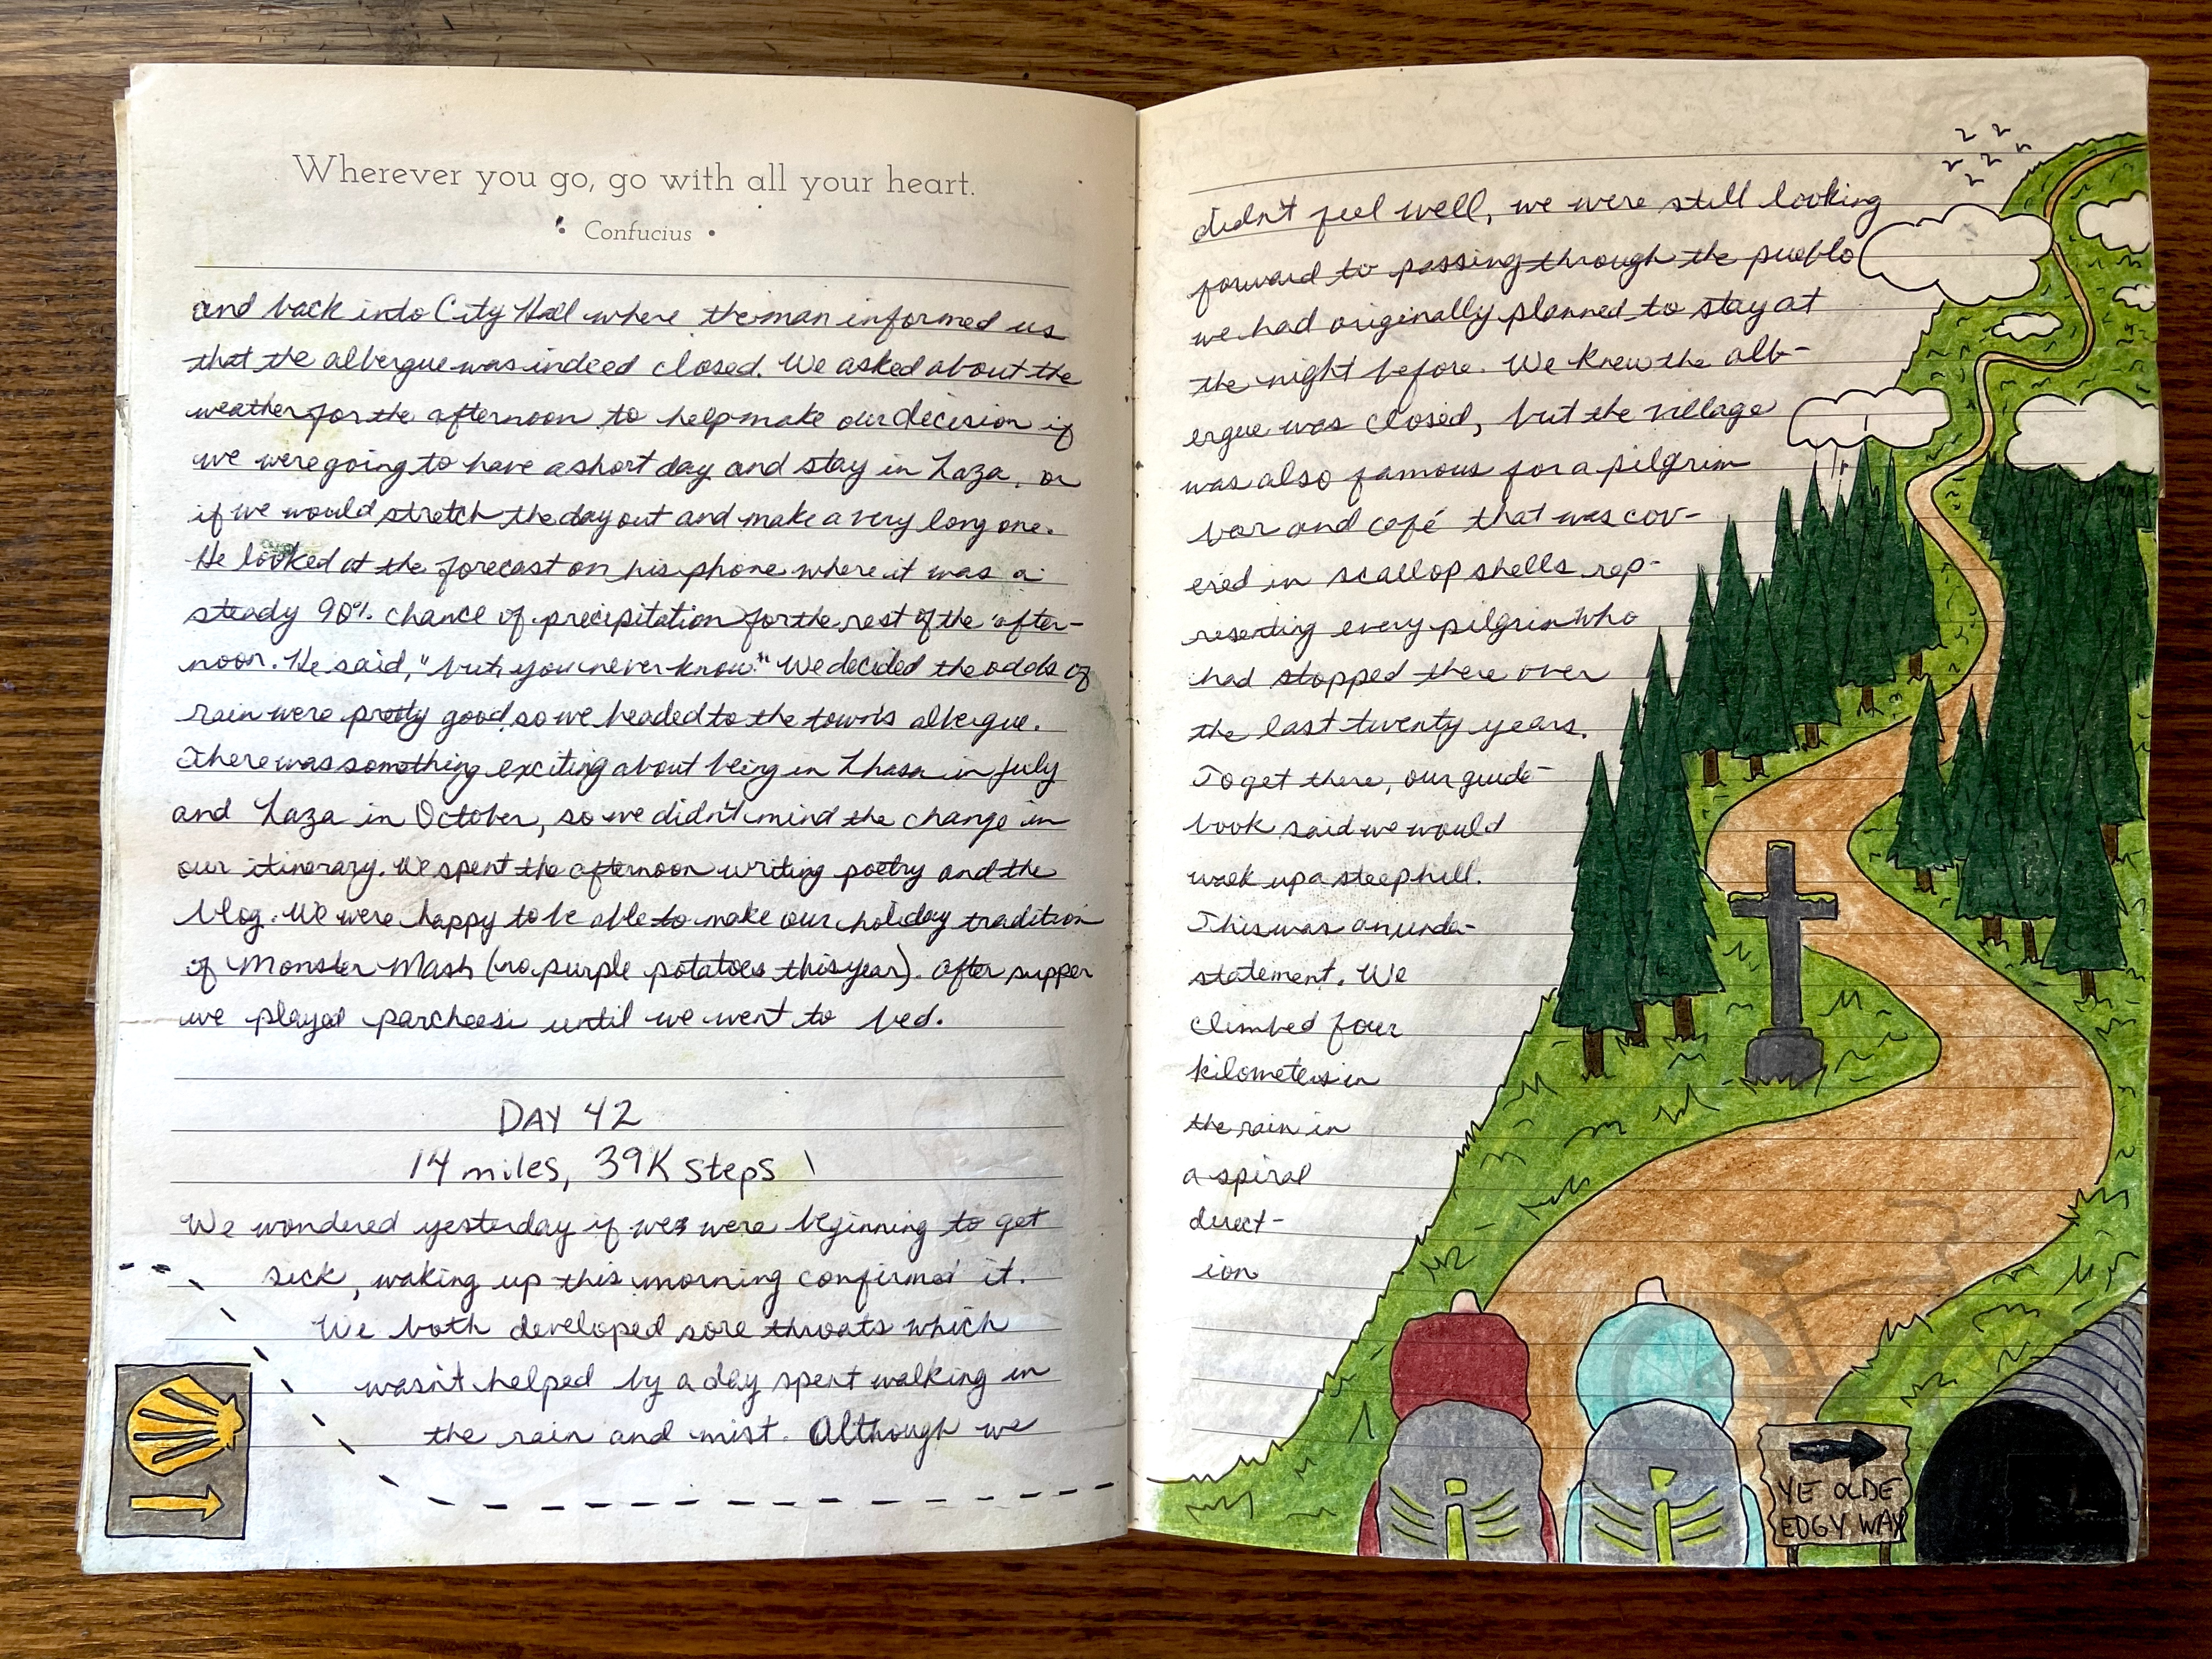 Wherever you go, go with all your heart.
• Confucius •
and back into City Hall where the man informed us
that the albergue was indeed closed. We asked about the
weather for the afternoon to help make our decision if
we were going to have a short day and stay in Laza, or
if we would stretch the day out and make a very long one.
He looked at the forecast on his phone where it was a
steady 90% chance of precipitation for the rest of the after-
noon. He said, "but, you never know." We decided the odds of
rain were pretty good, so we headed to the town's albergue.
There was something exciting about being in Lhasa in July
and Laza in October, so we didn't mind the change in
our itinerary. We spent the afternoon writing poetry and the
blog. We were happy to be able to make our holiday tradition
of Monster Mash (no purple potatoes this year). After supper
we played parcheesi until we went to bed.
DAY 42
14 miles, 39K steps
We wondered yesterday if we were beginning to get
sick, waking up this morning confirmed it.
We both developed sore throats which
wasn't helped by a day spent walking in
the rain and mist. Although we
didn't feel well, we were still looking
forward to passing through the pueblo
we had originally planned to stay at
the night before. We knew the alb-
ergue was closed, but the village
was also famous for a pilgrim
bar and café that was cov-
ered in scallop shells rep-
resenting every pilgrim who
had stopped there over
the last twenty years.
To get there, our guide-
book said we would
walk up a steep hill.
This was an under-
statement. We
climbed four
kilometers in
the rain in
a spiral
direct-
ion
YE OLDE
EDGY WAY